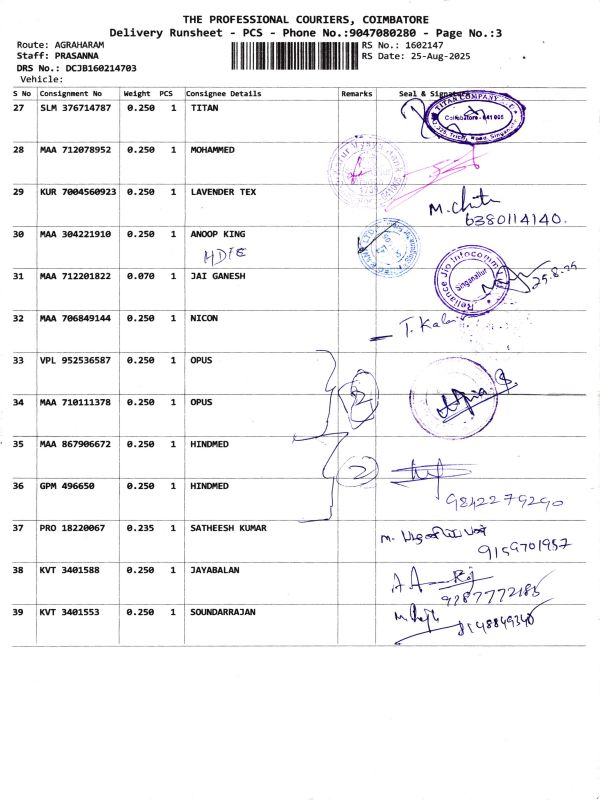 THE PROFESSIONAL COURIERS, COIMBATORE
Delivery Runsheet - PCS - Phone No.:9047080280 - Page No.:3
Route: AGRAHARAM RS No.: 1602147
Staff: PRASANNA RS Date: 25-Aug-2025
DRS No.: DCJB160214703
Vehicle:
S No Consignment No Weight PCS Consignee Details Remarks Seal & Signature
27 SLM 376714787 0.250 1 TITAN
TITAN COMPANY
Coimbatore - 641 005
28 MAA 712078952 0.250 1 MOHAMMED
29 KUR 7004560923 0.250 1 LAVENDER TEX
6380114140.
30 MAA 304221910 0.250 1 ANOOP KING
31 MAA 712201822 0.070 1 JAI GANESH
Reliance Jio Infocomm
Singanallur
25.8.25
32 MAA 706849144 0.250 1 NICON
T. Kala
33 VPL 952536587 0.250 1 OPUS
34 MAA 710111378 0.250 1 OPUS
2
35 MAA 867906672 0.250 1 HINDMED
36 GPM 496650 0.250 1 HINDMED
2
9842279290
37 PRO 18220067 0.235 1 SATHEESH KUMAR
9159701957
38 KVT 3401588 0.250 1 JAYABALAN
9787772185
39 KVT 3401553 0.250 1 SOUNDARRAJAN